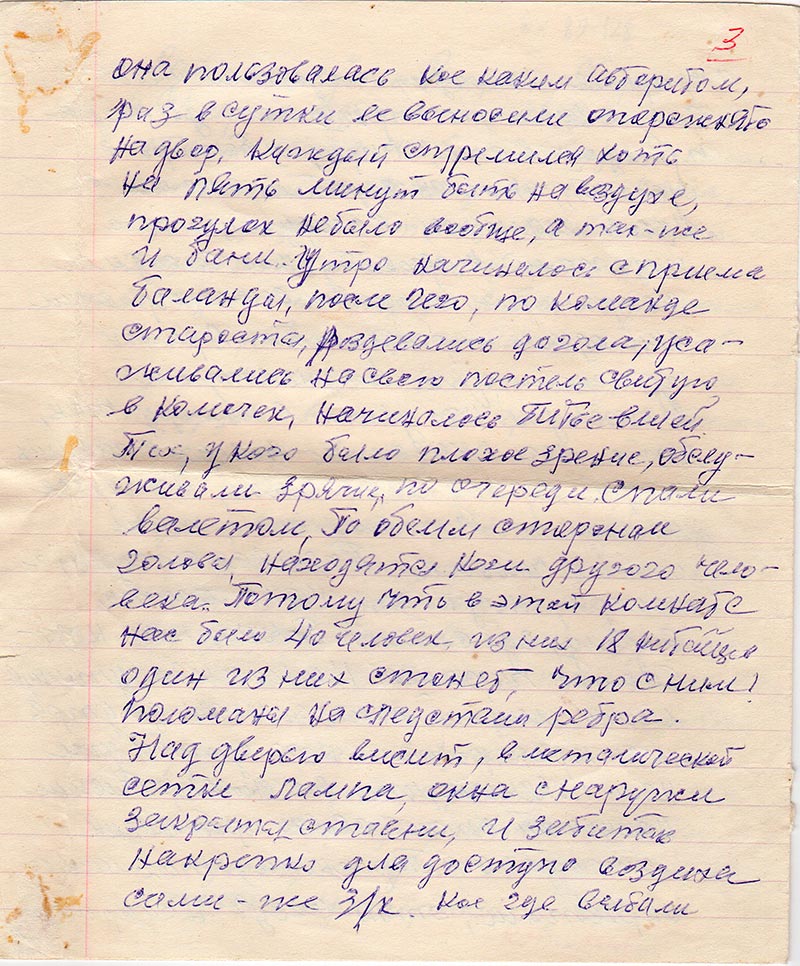 3
она пользовалась кое каким авторитом,
раз в сутки ее выносили опорожнять
на двор, каждый стремился хоть
на пять минут быть на воздухе,
прогулок небыло вообще, а так-же
и бани. Утро начиналось с приема
баланды, после чего, по команде
старосты, раздевались догола, уса-
живались на свою постель свитую
в комочек, начиналось битье вшей
Тех, у кого было плохое зрение, обслу-
живали зрячие, по очереди. спали
валетом, По обеим сторонам
головы, находятся ноги другого чело-
века. Потому что в этой комнате
нас было 40 человек, из них 18 китайцев
один из них стонет, что с ним!
поломаны на следствии ребра.
Над дверью висит, в металической
сетки лампа, окна снаружи
закрыты ставни, и забиты
накрепко для доступа воздуха
сами-же з/к. кое где выбили